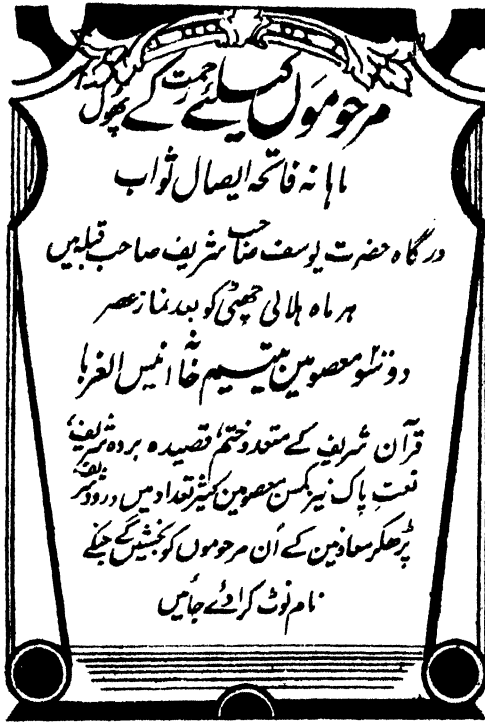 مرحوموں کیلئے رحمت کے پھول
ماہانہ فاتحہ ایصال ثواب
درگاہ حضرت یوسف صاحب شریف صاحب قبلہ میں
ہر ماہ ہلالی چھٹی کو بعد نماز عصر
دو سو معصومین یتیم خانہ انیس الغربا
قرآن شریف کے متعدد ختم، قصیدہ بردہ شریف،
نعت پاک نیز کمسن معصومین کثیر تعداد میں درود شریف
پڑھکر معاونین کے اُن مرحوموں کو بخشیں گے جنکے
نام نوٹ کرائے جائیں